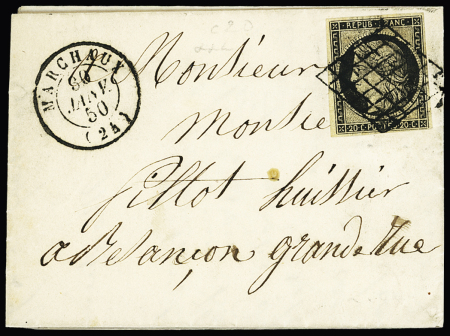 MARCHAUX
30
JANV.
50
(24)
REPUB. FRANC.
20 C POSTES 20 C
Monsieur
Monsie
Fillot huissier
a Besançon grande rue